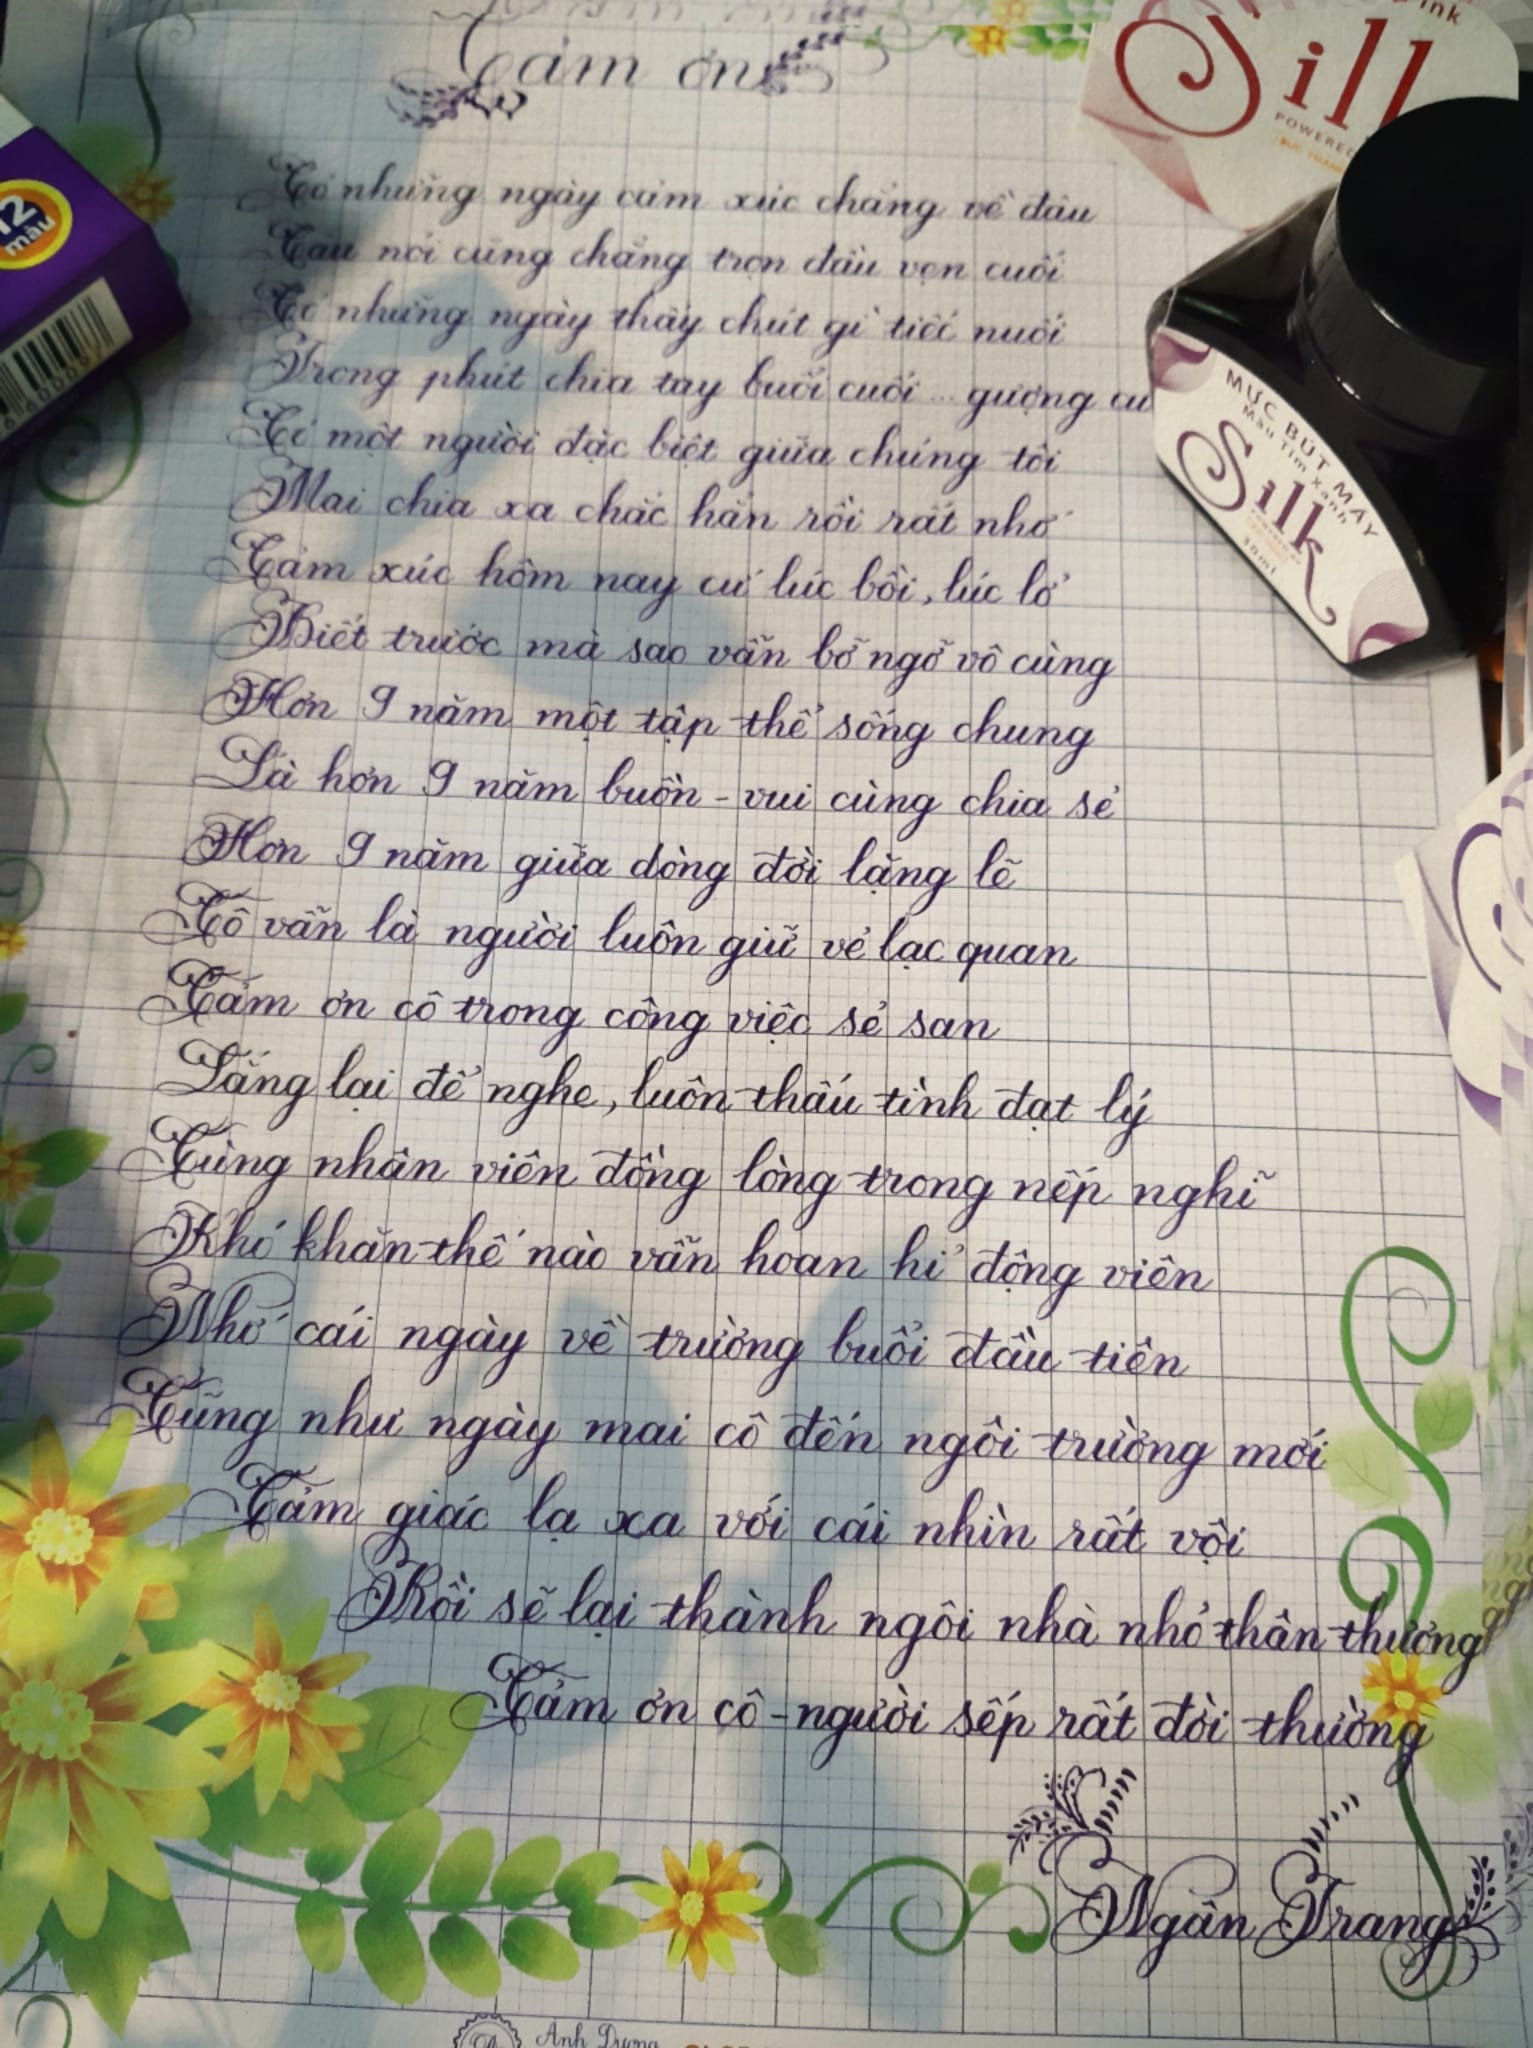 Cảm ơn
Silk
POWERED
12
màu
Có những ngày cảm xúc chẳng về đâu
Câu nói cũng chẳng trọn đầu vẹn cuối
Có những ngày thấy chút gì tiếc nuối
Trong phút chia tay buổi cuối... gượng cư
Có một người đặc biệt giữa chúng tôi
Mai chia xa chắc hẳn rồi rất nhớ
Cảm xúc hôm nay cứ lúc bồi, lúc lở
Biết trước mà sao vẫn bỡ ngỡ vô cùng
Hơn 9 năm một tập thể sống chung
Là hơn 9 năm buồn - vui cùng chia sẻ
Hơn 9 năm giữa dòng đời lặng lẽ
Cô vẫn là người luôn giữ vẻ lạc quan
Cảm ơn cô trong công việc sẻ san
Lắng lại để nghe, luôn thấu tình đạt lý
Cùng nhân viên đồng lòng trong nếp nghĩ
Khó khăn thế nào vẫn hoan hỉ động viên
Nhớ cái ngày về trường buổi đầu tiên
Cũng như ngày mai cô đến ngôi trường mới
Cảm giác lạ xa với cái nhìn rất vội
Rồi sẽ lại thành ngôi nhà nhỏ thân thương
Cảm ơn cô - người sếp rất đời thường
Ngân Trang
MỰC BÚT MÁY
Màu Tím Xanh
Silk
30ml
Anh Dương